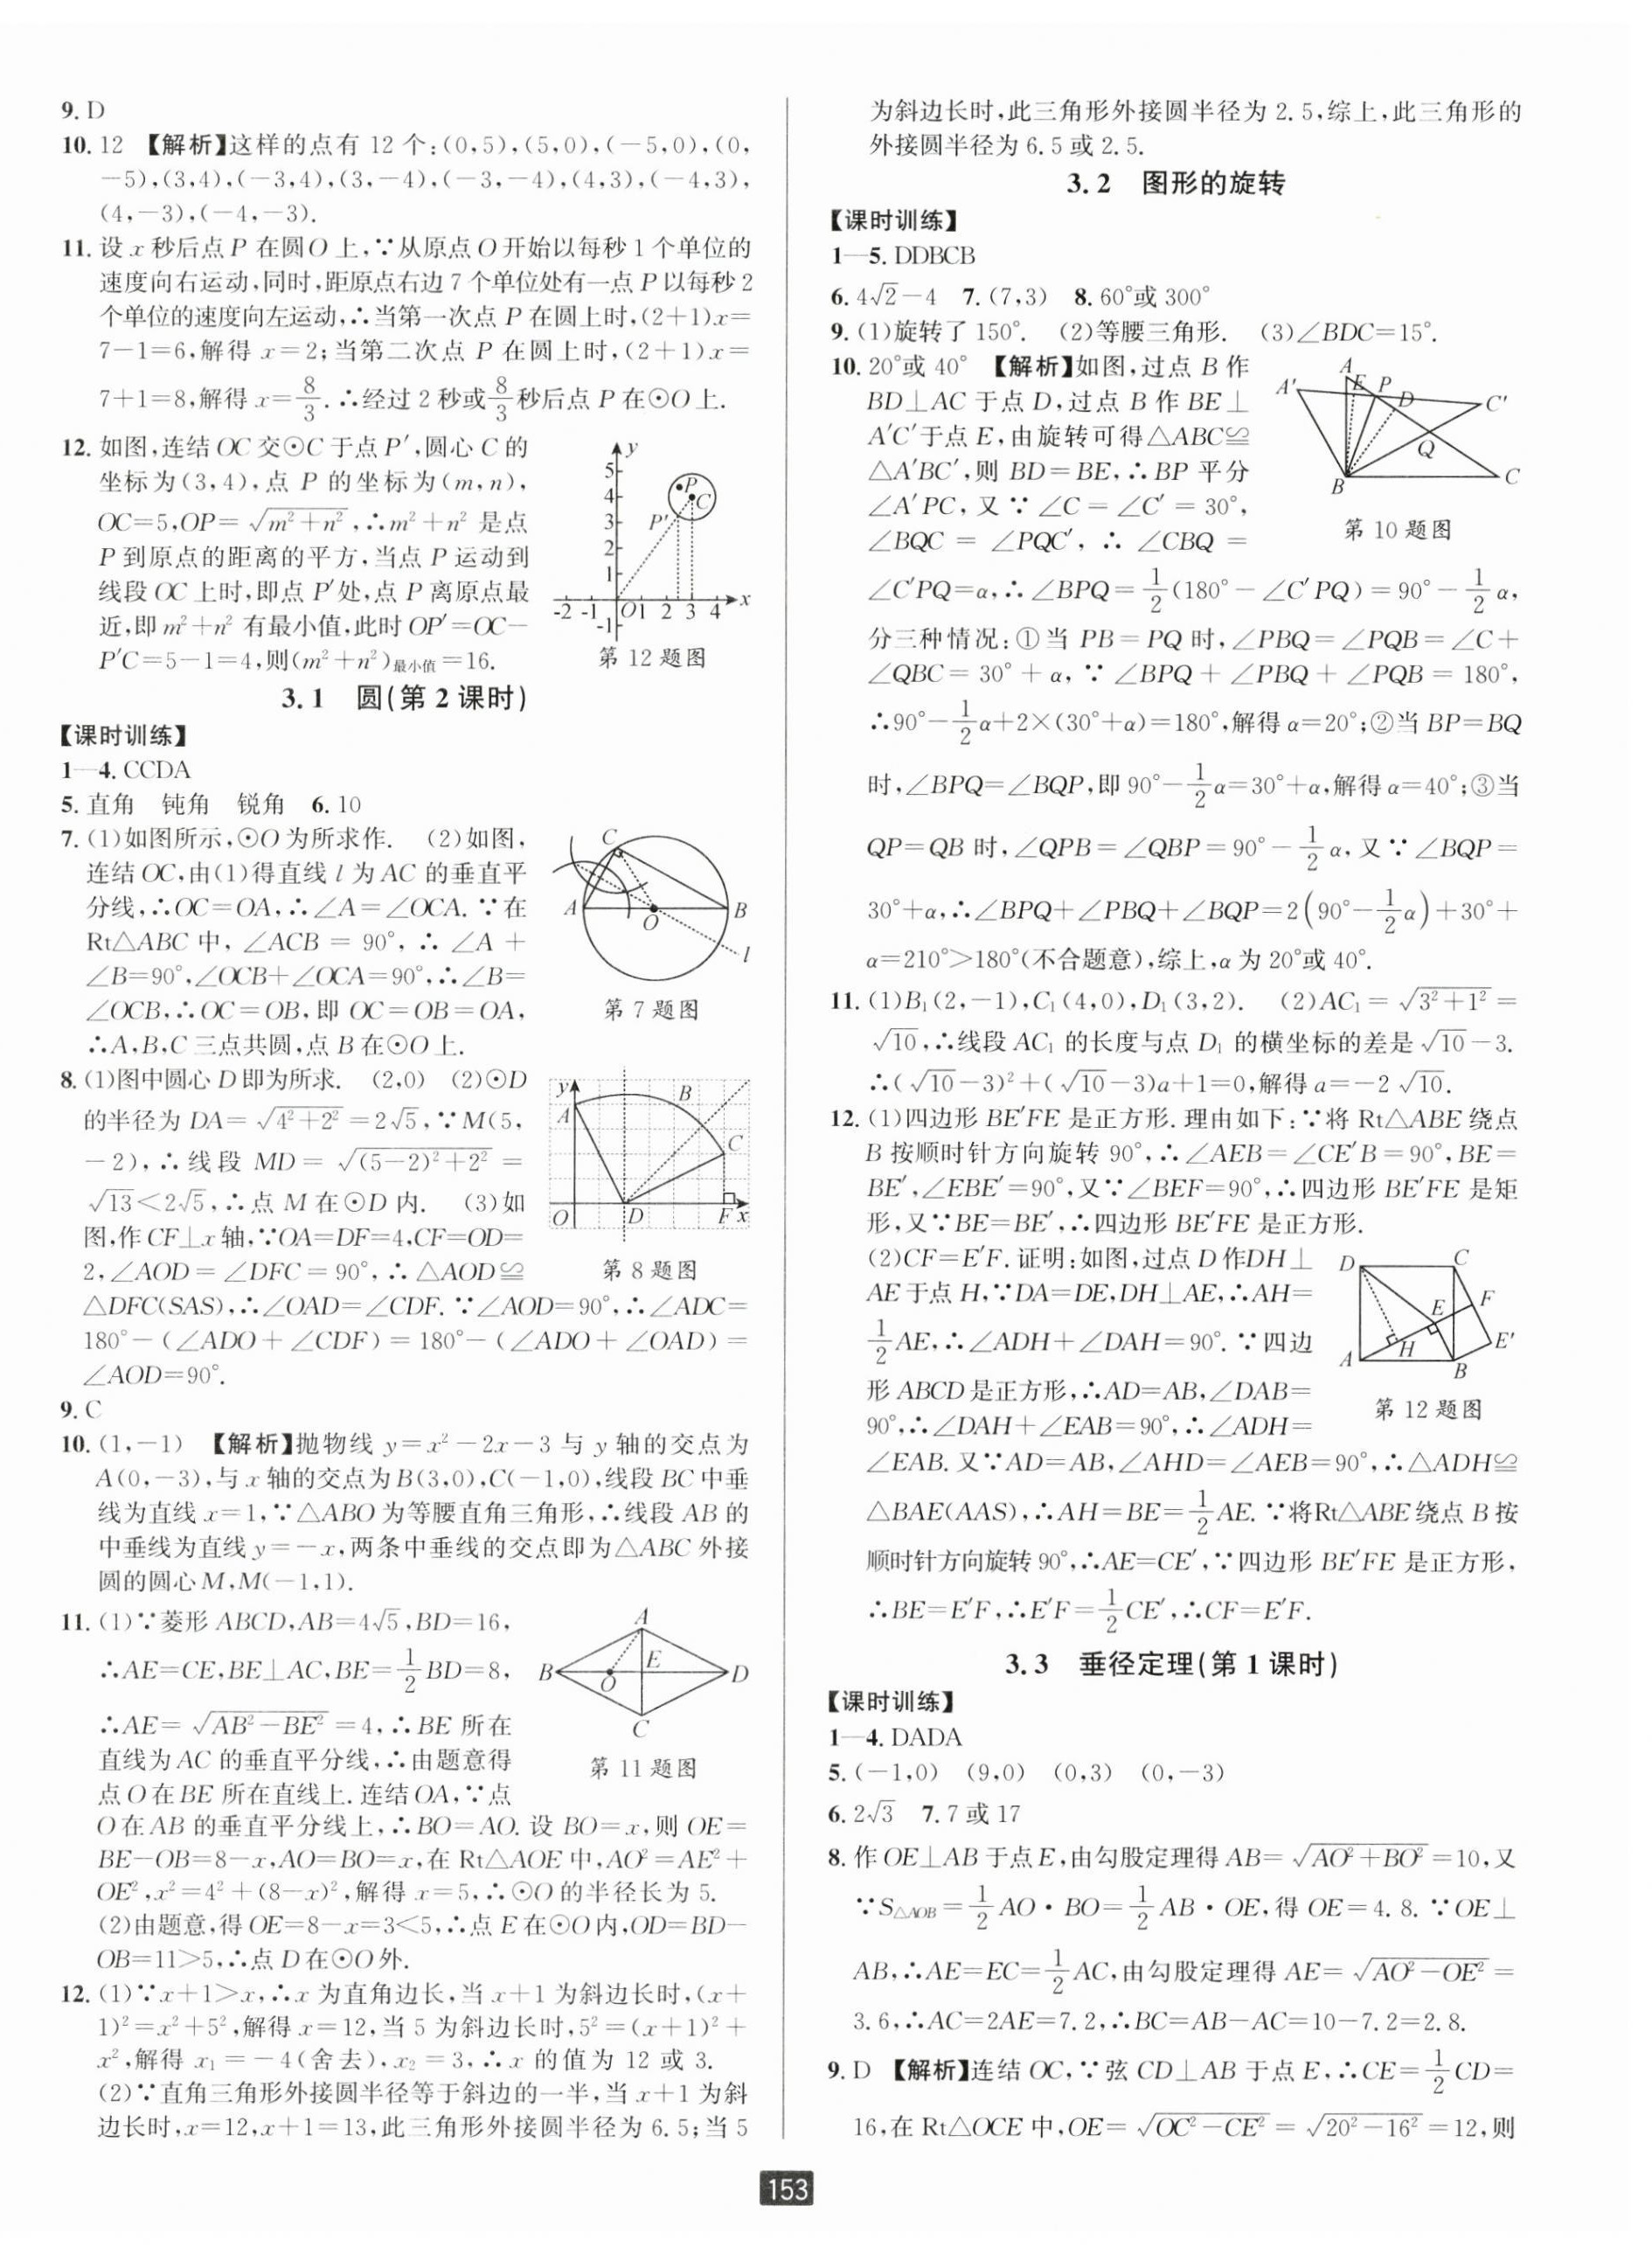 9. D
10. 12 【解析】这样的点有 12 个:(0,5),(5,0),(-5,0),(0,
-5),(3,4),(-3,4),(3,-4),(-3,-4),(4,3),(-4,3),
(4,-3),(-4,-3).
11. 设 x 秒后点 P 在圆O 上,∵从原点 O 开始以每秒 1 个单位的
速度向右运动,同时,距原点右边 7 个单位处有一点 P 以每秒 2
个单位的速度向左运动,∴当第一次点 P 在圆上时,(2+1)x=
7-1=6,解得 x=2;当第二次点 P 在圆上时,(2+1)x=
7+1=8,解得 x=8/3. ∴经过 2 秒或8/3秒后点 P 在⊙O 上.
12. 如图,连结 OC 交⊙C 于点 P′,圆心 C 的
坐标为(3,4),点 P 的坐标为(m,n),
OC=5,OP=√(m²+n²),∴m²+n² 是点
P 到原点的距离的平方,当点 P 运动到
线段 OC 上时,即点 P′处,点 P 离原点最
近,即 m²+n² 有最小值,此时 OP′=OC-
P′C=5-1=4,则(m²+n²)最小值=16.
y
5
4
3
2
1
-1
-2 -1 O 1 2 3 4 x
P
C
P′
第 12 题图
3.1 圆(第 2 课时)
【课时训练】
1—4. CCDA
5. 直角 钝角 锐角 6. 10
7. (1)如图所示,⊙O 为所求作. (2)如图,
连结 OC,由(1)得直线 l 为 AC 的垂直平
分线,∴OC=OA,∴∠A=∠OCA. ∵在
Rt△ABC 中,∠ACB = 90°, ∴ ∠A +
∠B=90°,∠OCB+∠OCA=90°,∴∠B=
∠OCB,∴OC=OB,即 OC=OB=OA,
∴A,B,C 三点共圆,点 B 在⊙O 上.
C
A
O
B
l
第 7 题图
8. (1)图中圆心 D 即为所求. (2,0) (2)⊙D
的半径为 DA=√(4²+2²)=2√5,∵M(5,
-2),∴线段 MD=√((5-2)²+2²)=
√13<2√5,∴点 M 在⊙D 内. (3)如
图,作 CF⊥x 轴,∵OA=DF=4,CF=OD=
2,∠AOD=∠DFC=90°,∴△AOD≌
△DFC(SAS),∴∠OAD=∠CDF. ∵∠AOD=90°,∴∠ADC=
180°-(∠ADO+∠CDF)=180°-(∠ADO+∠OAD)=
∠AOD=90°.
y
A
B
C
O
D
F
x
第 8 题图
9. C
10. (1,-1) 【解析】抛物线 y=x²-2x-3 与 y 轴的交点为
A(0,-3),与 x 轴的交点为 B(3,0),C(-1,0),线段 BC 中垂
线为直线 x=1,∵△ABO 为等腰直角三角形,∴线段 AB 的
中垂线为直线 y=-x,两条中垂线的交点即为△ABC 外接
圆的圆心 M,M(-1,1).
11. (1)∵菱形 ABCD,AB=4√5,BD=16,
∴AE=CE,BE⊥AC,BE=1/2BD=8,
∴AE=√(AB²-BE²)=4,∴BE 所在
直线为 AC 的垂直平分线,∴由题意得
点 O 在 BE 所在直线上. 连结 OA,∵点
O 在 AB 的垂直平分线上,∴BO=AO. 设 BO=x,则 OE=
BE-OB=8-x,AO=BO=x,在 Rt△AOE 中,AO²=AE²+
OE²,x²=4²+(8-x)²,解得 x=5,∴⊙O 的半径长为 5.
(2)由题意,得 OE=8-x=3<5,∴点 E 在⊙O 内,OD=BD-
OB=11>5,∴点 D 在⊙O 外.
A
B
O
E
D
C
第 11 题图
12. (1)∵x+1>x,∴x 为直角边长,当 x+1 为斜边长时,(x+
1)²=x²+5²,解得 x=12,当 5 为斜边长时,5²=(x+1)²+
x²,解得 x₁=-4(舍去),x₂=3,∴x 的值为 12 或 3.
(2)∵直角三角形外接圆半径等于斜边的一半,当 x+1 为斜
边长时,x=12,x+1=13,此三角形外接圆半径为 6.5;当 5
为斜边长时,此三角形外接圆半径为 2.5,综上,此三角形的
外接圆半径为 6.5 或 2.5.
3.2 图形的旋转
【课时训练】
1—5. DDBCB
6. 4√2-4 7. (7,3) 8. 60°或 300°
9. (1)旋转了 150°. (2)等腰三角形. (3)∠BDC=15°.
10. 20°或 40° 【解析】如图,过点 B 作
BD⊥AC 于点 D,过点 B 作 BE⊥
A′C′于点 E,由旋转可得△ABC≌
△A′BC′,则 BD=BE,∴BP 平分
∠A′PC,又∵∠C=∠C′=30°,
∠BQC = ∠PQC′, ∴ ∠CBQ =
∠C′PQ=α,∴∠BPQ=1/2(180°-∠C′PQ)=90°-1/2α,
分三种情况:①当 PB=PQ 时,∠PBQ=∠PQB=∠C+
∠QBC=30°+α,∵∠BPQ+∠PBQ+∠PQB=180°,
∴90°-1/2α+2×(30°+α)=180°,解得 α=20°;②当 BP=BQ
时,∠BPQ=∠BQP,即 90°-1/2α=30°+α,解得 α=40°;③当
QP=QB 时,∠QPB=∠QBP=90°-1/2α,又∵∠BQP=
30°+α,∴∠BPQ+∠PBQ+∠BQP=2(90°-1/2α)+30°+
α=210°>180°(不合题意),综上,α 为 20°或 40°.
A
A′
E
P
D
C′
Q
B
C
第 10 题图
11. (1)B₁(2,-1),C₁(4,0),D₁(3,2). (2)AC₁=√(3²+1²)=
√10,∴线段 AC₁ 的长度与点 D₁ 的横坐标的差是√10-3.
∴(√10-3)²+(√10-3)a+1=0,解得 a=-2√10.
12. (1)四边形 BE′FE 是正方形. 理由如下:∵将 Rt△ABE 绕点
B 按顺时针方向旋转 90°,∴∠AEB=∠CE′B=90°,BE=
BE′,∠EBE′=90°,又∵∠BEF=90°,∴四边形 BE′FE 是矩
形,又∵BE=BE′,∴四边形 BE′FE 是正方形.
(2)CF=E′F. 证明:如图,过点 D 作DH⊥
AE 于点 H,∵DA=DE,DH⊥AE,∴AH=
1/2AE,∴∠ADH+∠DAH=90°. ∵四边
形 ABCD 是正方形,∴AD=AB,∠DAB=
90°,∴∠DAH+∠EAB=90°,∴∠ADH=
∠EAB. 又∵AD=AB,∠AHD=∠AEB=90°,∴△ADH≌
△BAE(AAS),∴AH=BE=1/2AE. ∵将Rt△ABE 绕点 B 按
顺时针方向旋转 90°,∴AE=CE′,∵四边形 BE′FE 是正方形,
∴BE=E′F,∴E′F=1/2CE′,∴CF=E′F.
D
C
E
F
E′
A
H
B
第 12 题图
3.3 垂径定理(第 1 课时)
【课时训练】
1—4. DADA
5. (-1,0) (9,0) (0,3) (0,-3)
6. 2√3 7. 7 或 17
8. 作 OE⊥AB 于点 E,由勾股定理得 AB=√(AO²+BO²)=10,又
∵S△AOB=1/2AO·BO=1/2AB·OE,得 OE=4.8. ∵OE⊥
AB,∴AE=EC=1/2AC,由勾股定理得 AE=√(AO²-OE²)=
3.6,∴AC=2AE=7.2,∴BC=AB-AC=10-7.2=2.8.
9. D 【解析】连结 OC,∵弦 CD⊥AB 于点 E,∴CE=1/2CD=
16,在 Rt△OCE 中,OE=√(OC²-CE²)=√(20²-16²)=12,则
153